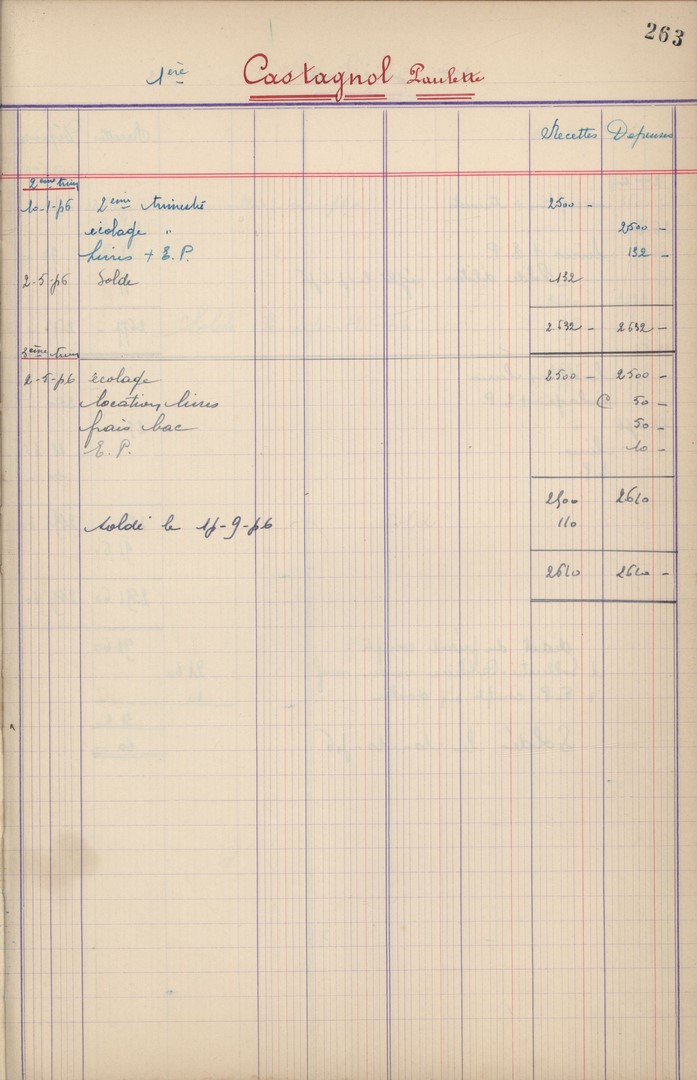 263
1ère Castagnol Paulette
Recettes Depenses
2ème trim
10-1-56 2ème trimestre 2500 -
écolage " 2500 -
Livres + E.P. 132 -
2-5-56 Solde 132
2632 - 2632 -
3ème trim
2-5-56 écolage 2500 - 2500 -
location livres 50 -
frais bac 50 -
E.P. 10 -
2500 2610
soldé le 15-9-56 110
2610 2610 -